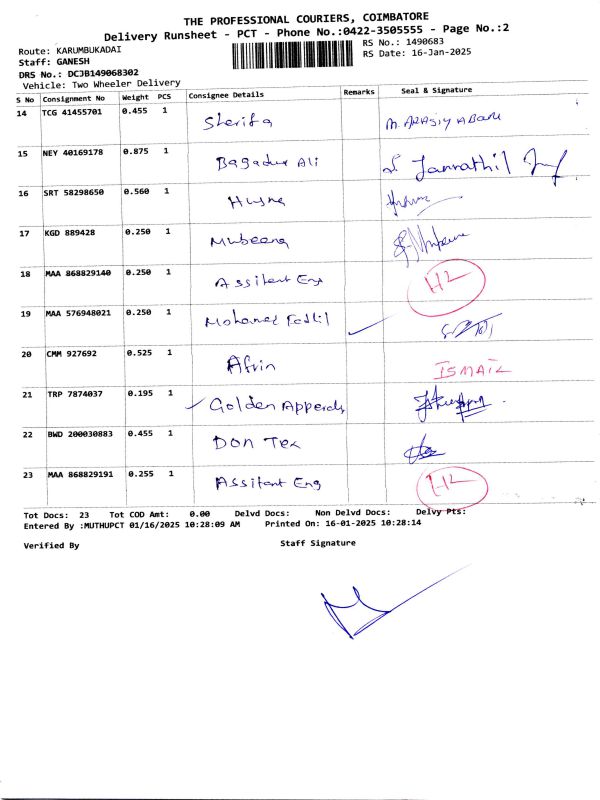 THE PROFESSIONAL COURIERS, COIMBATORE
Delivery Runsheet - PCT - Phone No.:0422-3505555 - Page No.:2
Route: KARUMBUKADAI RS No.: 1490683
Staff: GANESH RS Date: 16-Jan-2025
DRS No.: DCJB149068302
Vehicle: Two Wheeler Delivery
S No Consignment No Weight PCS Consignee Details Remarks Seal & Signature
14 TCG 41455701 0.455 1 Sherifa
15 NEY 40169178 0.875 1 Bagadur Ali
16 SRT 58298650 0.560 1 Husna
17 KGD 889428 0.250 1 Mubeena
18 MAA 868829140 0.250 1 Assitent Eng HL
19 MAA 576948021 0.250 1 Mohamed Fadil
20 CMM 927692 0.525 1 Afrin ISMAIL
21 TRP 7874037 0.195 1 Golden Apperds
22 BWD 200030883 0.455 1 DON Tex
23 MAA 868829191 0.255 1 Assitent Eng HL
Tot Docs: 23 Tot COD Amt: 0.00 Delvd Docs: Non Delvd Docs: Delvy Pts:
Entered By :MUTHUPCT 01/16/2025 10:28:09 AM Printed On: 16-01-2025 10:28:14
Verified By Staff Signature